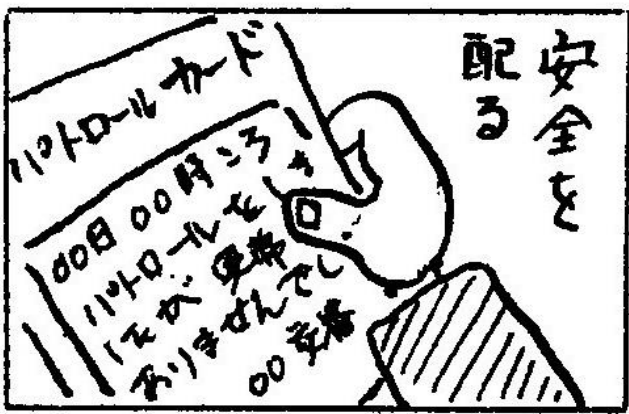 安全を
配る
パトロールカード
00日00時ころ
パトロールを
したが 異常
ありませんでし
00交番